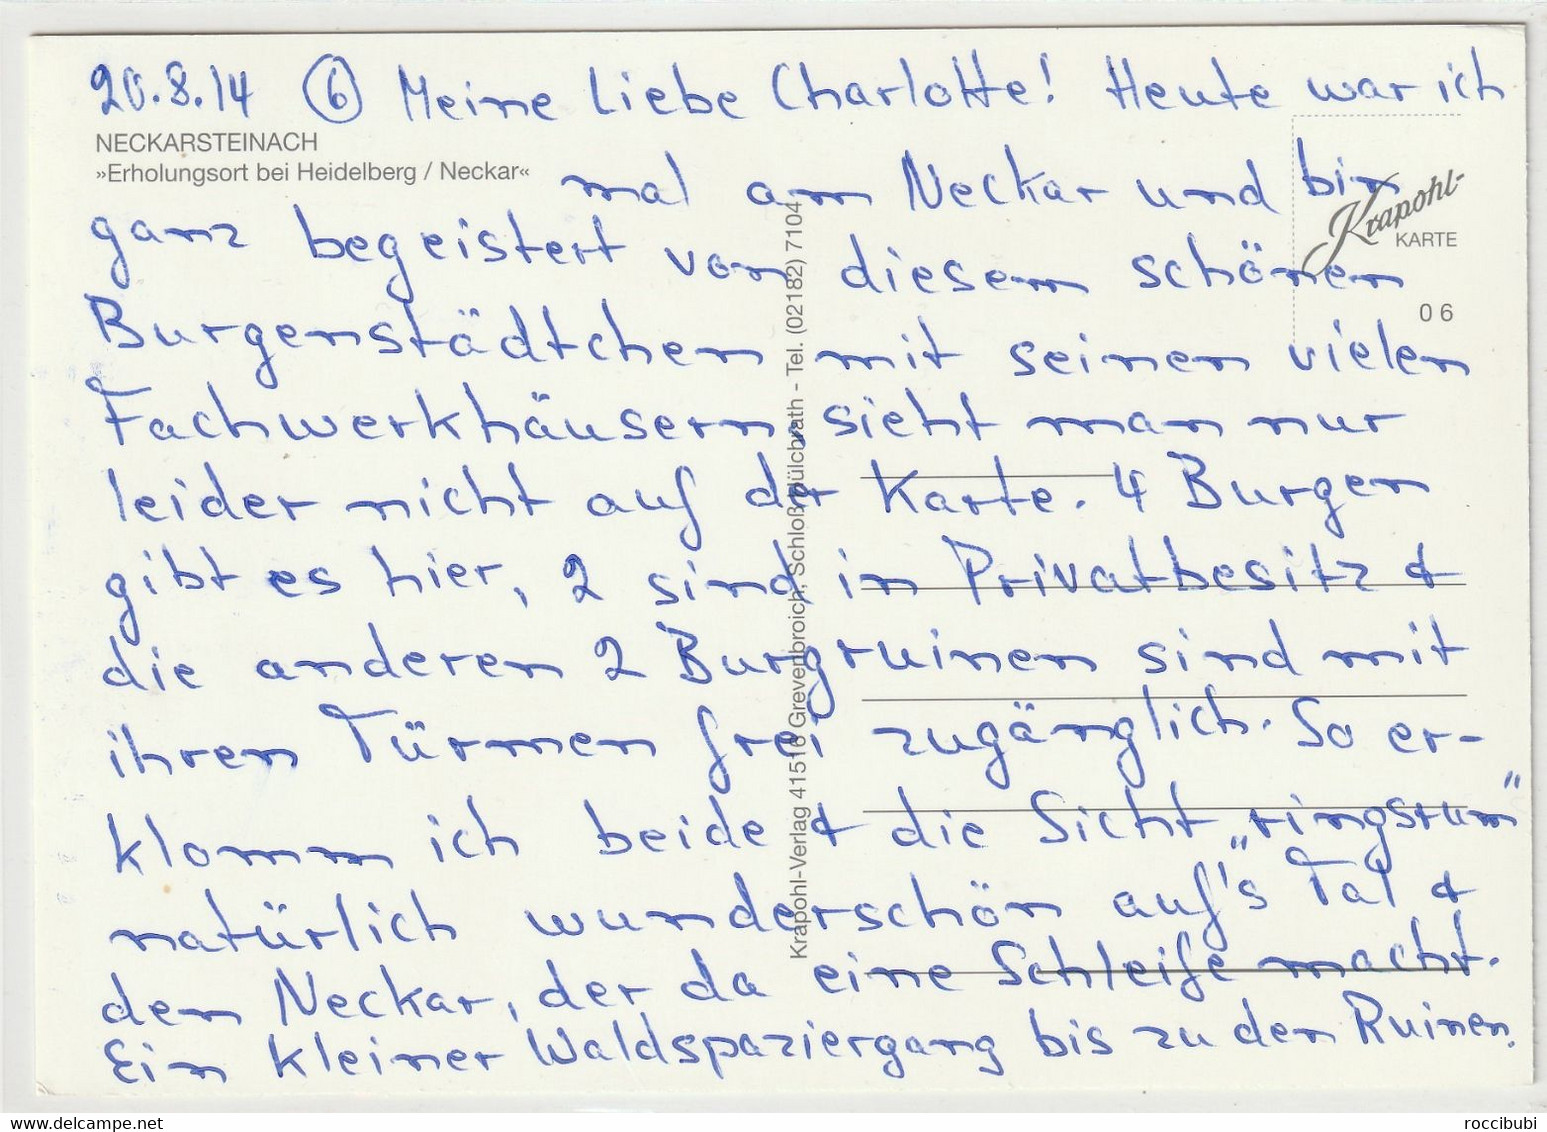 20.8.14 ⑥ Meine liebe Charlotte! Heute war ich
NECKARSTEINACH
»Erholungsort bei Heidelberg / Neckar«
mal am Neckar und bin
Krapohl-
KARTE
06
ganz begeistert von diesem schönen
Burgenstädtchen mit seinen vielen
Fachwerkhäusern, sieht man nur
leider nicht auf der Karte. 4 Burgen
gibt es hier, 2 sind in Privatbesitz &
die anderen 2 Burgruinen sind mit
ihren Türmen frei zugänglich. So er-
klomm ich beide & die Sicht „ringsrum"
natürlich wunderschön auf's Tal &
den Neckar, der da eine Schleife macht.
Ein kleiner Waldspaziergang bis zu den Ruinen.
Krapohl-Verlag 41516 Grevenbroich, Schloß Hülchrath - Tel. (02182) 7104
www.delcampe.net
roccibubi